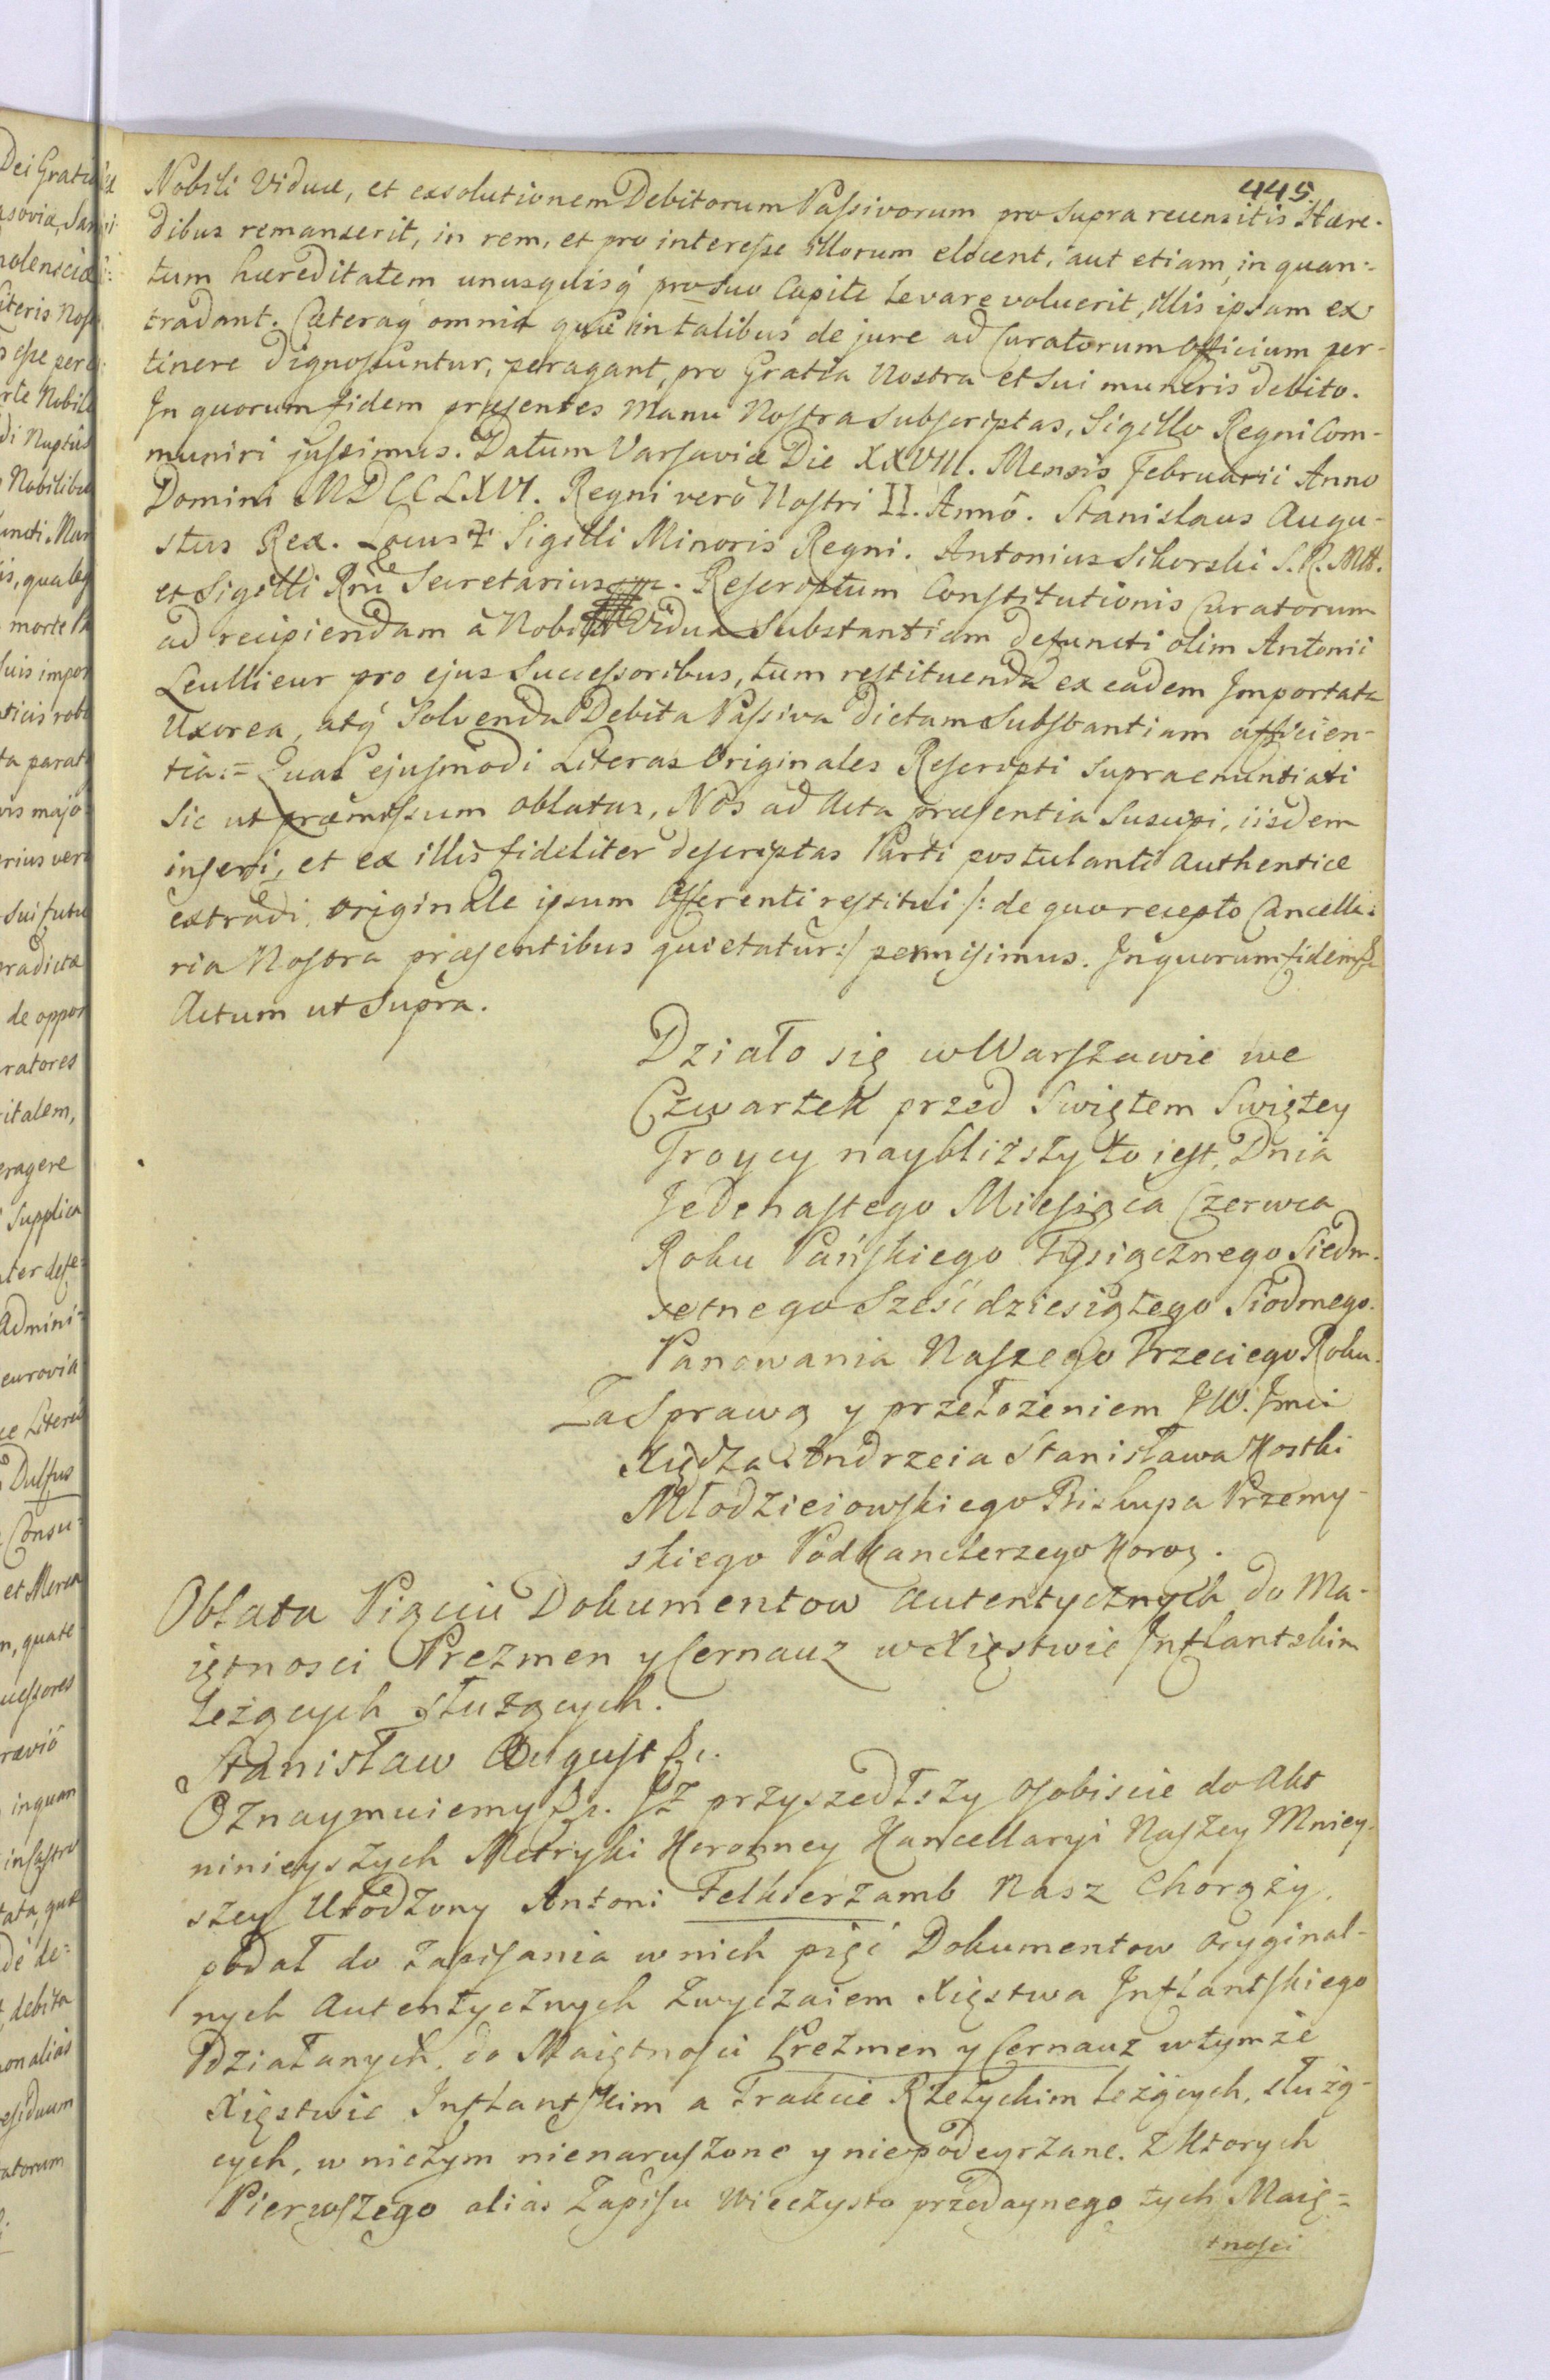 445.
Nobili Viduæ, et exsolutionem Debitorum Passivorum pro supra recensitis Hære-
dibus remanserit, in rem, et pro interesse illorum elocent, aut etiam, in quan-
tum hæreditatem unusquisq́ pro suo Capite levare voluerit, illis ipsam ex
tradant. Cæteraq́ omnia quæ in talibus de jure ad Curatorum Officium per-
tinere dignoscuntur, peragant, pro Gratia Nostra et sui muneris debito.
In quorum fidem præsentes Manu Nostra subscriptas, Sigillo Regni Com-
muniri jussimus. Datum Varsaviæ Die XXVIII. Mensis Februarii Anno
Domini MDCCLXVI. Regni verò Nostri II. Annô. Stanislaus Augu-
stus Rex. Locus Sigilli Minoris Regni. Antonius Sikorski S. R. Mtt.
et Sigilli Rni Secretarius. Rescriptum Constitutionis Curatorum
ad recipiendam à Nobili Vidua Substantiam defuncti olim Antonii
Leullieur pro ejus Successoribus, tum restituenda ex eadem Importata
Uxorea, atq́ Solvenda Debita Passiva dictam Substantiam afficien-
tia:= Quas ejusmodi Literas Originales Rescripti supraenuntiati
sic ut præmissum oblatas, Nos ad Acta præsentia Suscipi, iisdem
inseri, et ex illis fideliter descriptas Parti postulanti authentice
extradi, originale ipsum Offerenti restitui /: de quo recepto Cancella:
ria Nostra præsentibus quietatur:/ permisimus. In quorum fidem &
Actum ut supra.
Działo się w Warszawie we
Czwartek przed Swiętem Swiętey
Troycy naybliższy to iest, Dnia
Jedenastego Miesiąca Czerwca
Roku Pańskiego Tysiącznego Siedm-
setnego Sześćdziesiątego Siodmego.
Panowania Naszego Trzeciego Roku.
Za Sprawą y przełożeniem JW. Jmci
Xiędza Andrzeia Stanisława Kostki
Młodzieiowskiego Biskupa Przemy-
skiego Podkanclerzego Koroz.
Oblata Pięciu Dokumentow autentycznych do Ma-
iętnosci Prezmen y Cernauz w Xięstwie Inflantskim
leżących służących.
Stanisław August &c.
Oznaymuiemy &c. Iż przyszedłszy osobiscie do Akt
ninieyszych Metryki Koronney Kancellaryi Naszey Mniey-
szey Urodzony Antoni Felkierzamb Nasz Chorąży,
podał do zapisania w nich pięć Dokumentow oryginal-
nych autentycznych zwyczaiem Xięstwa Inflantskiego
działanych, do Maiętnosci Prezmen y Cernauz w tymże
Xięstwie Inflantskim a Trakcie Rzeżyckim leżących, służą-
cych, w niczym nienaruszone y niepodeyrzane. z Ktorych
Pierwszego alias Zapisu Wieczysto przedaynego tych Maię-
tnosci